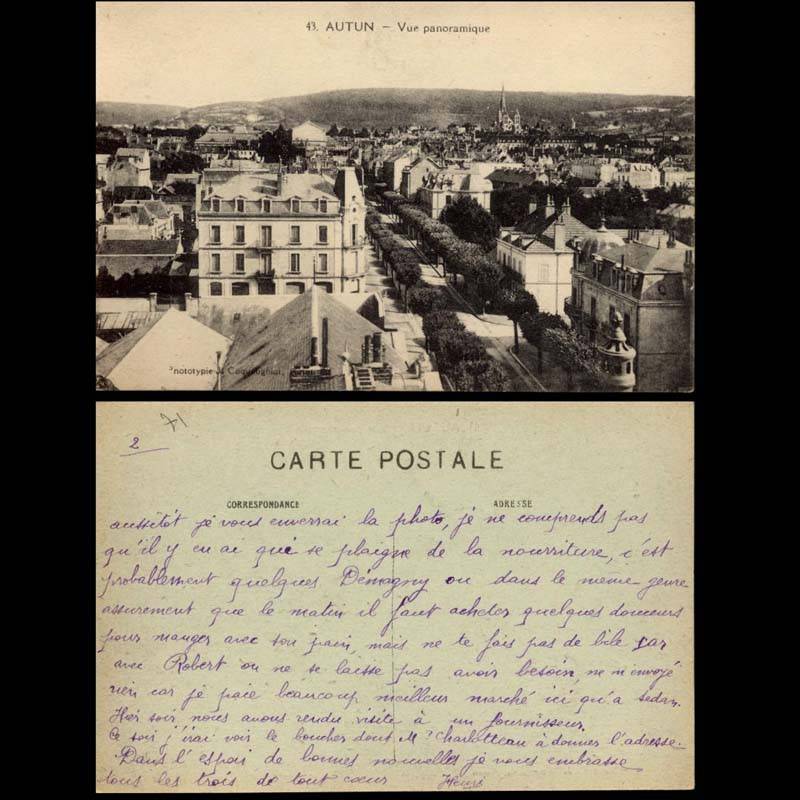 43. AUTUN – Vue panoramique
Phototypie
2
71
CARTE POSTALE
CORRESPONDANCE
ADRESSE
aussitôt je vous enverrai la photo, je ne comprends pas
qu'il y en ai qui se plaigne de la nourriture, c'est
probablement quelques Démagny ou dans le même genre
assurement que le matin il faut acheter quelques douceurs
pour manger avec son pain, mais ne te fais pas de bile car
avec Robert on ne se laisse pas avoir besoin, ne m'envoyé
rien car je paie beaucoup meilleur marché ici qu'a sedan.
Hier soir, nous avons rendu visite à un fournisseur.
Ce soir j'irai voir le boucher dont M Charlotteau à donner l'adresse.
Dans l'espoir de bonnes nouvelles je vous embrasse
tous les trois de tout cœur Henri